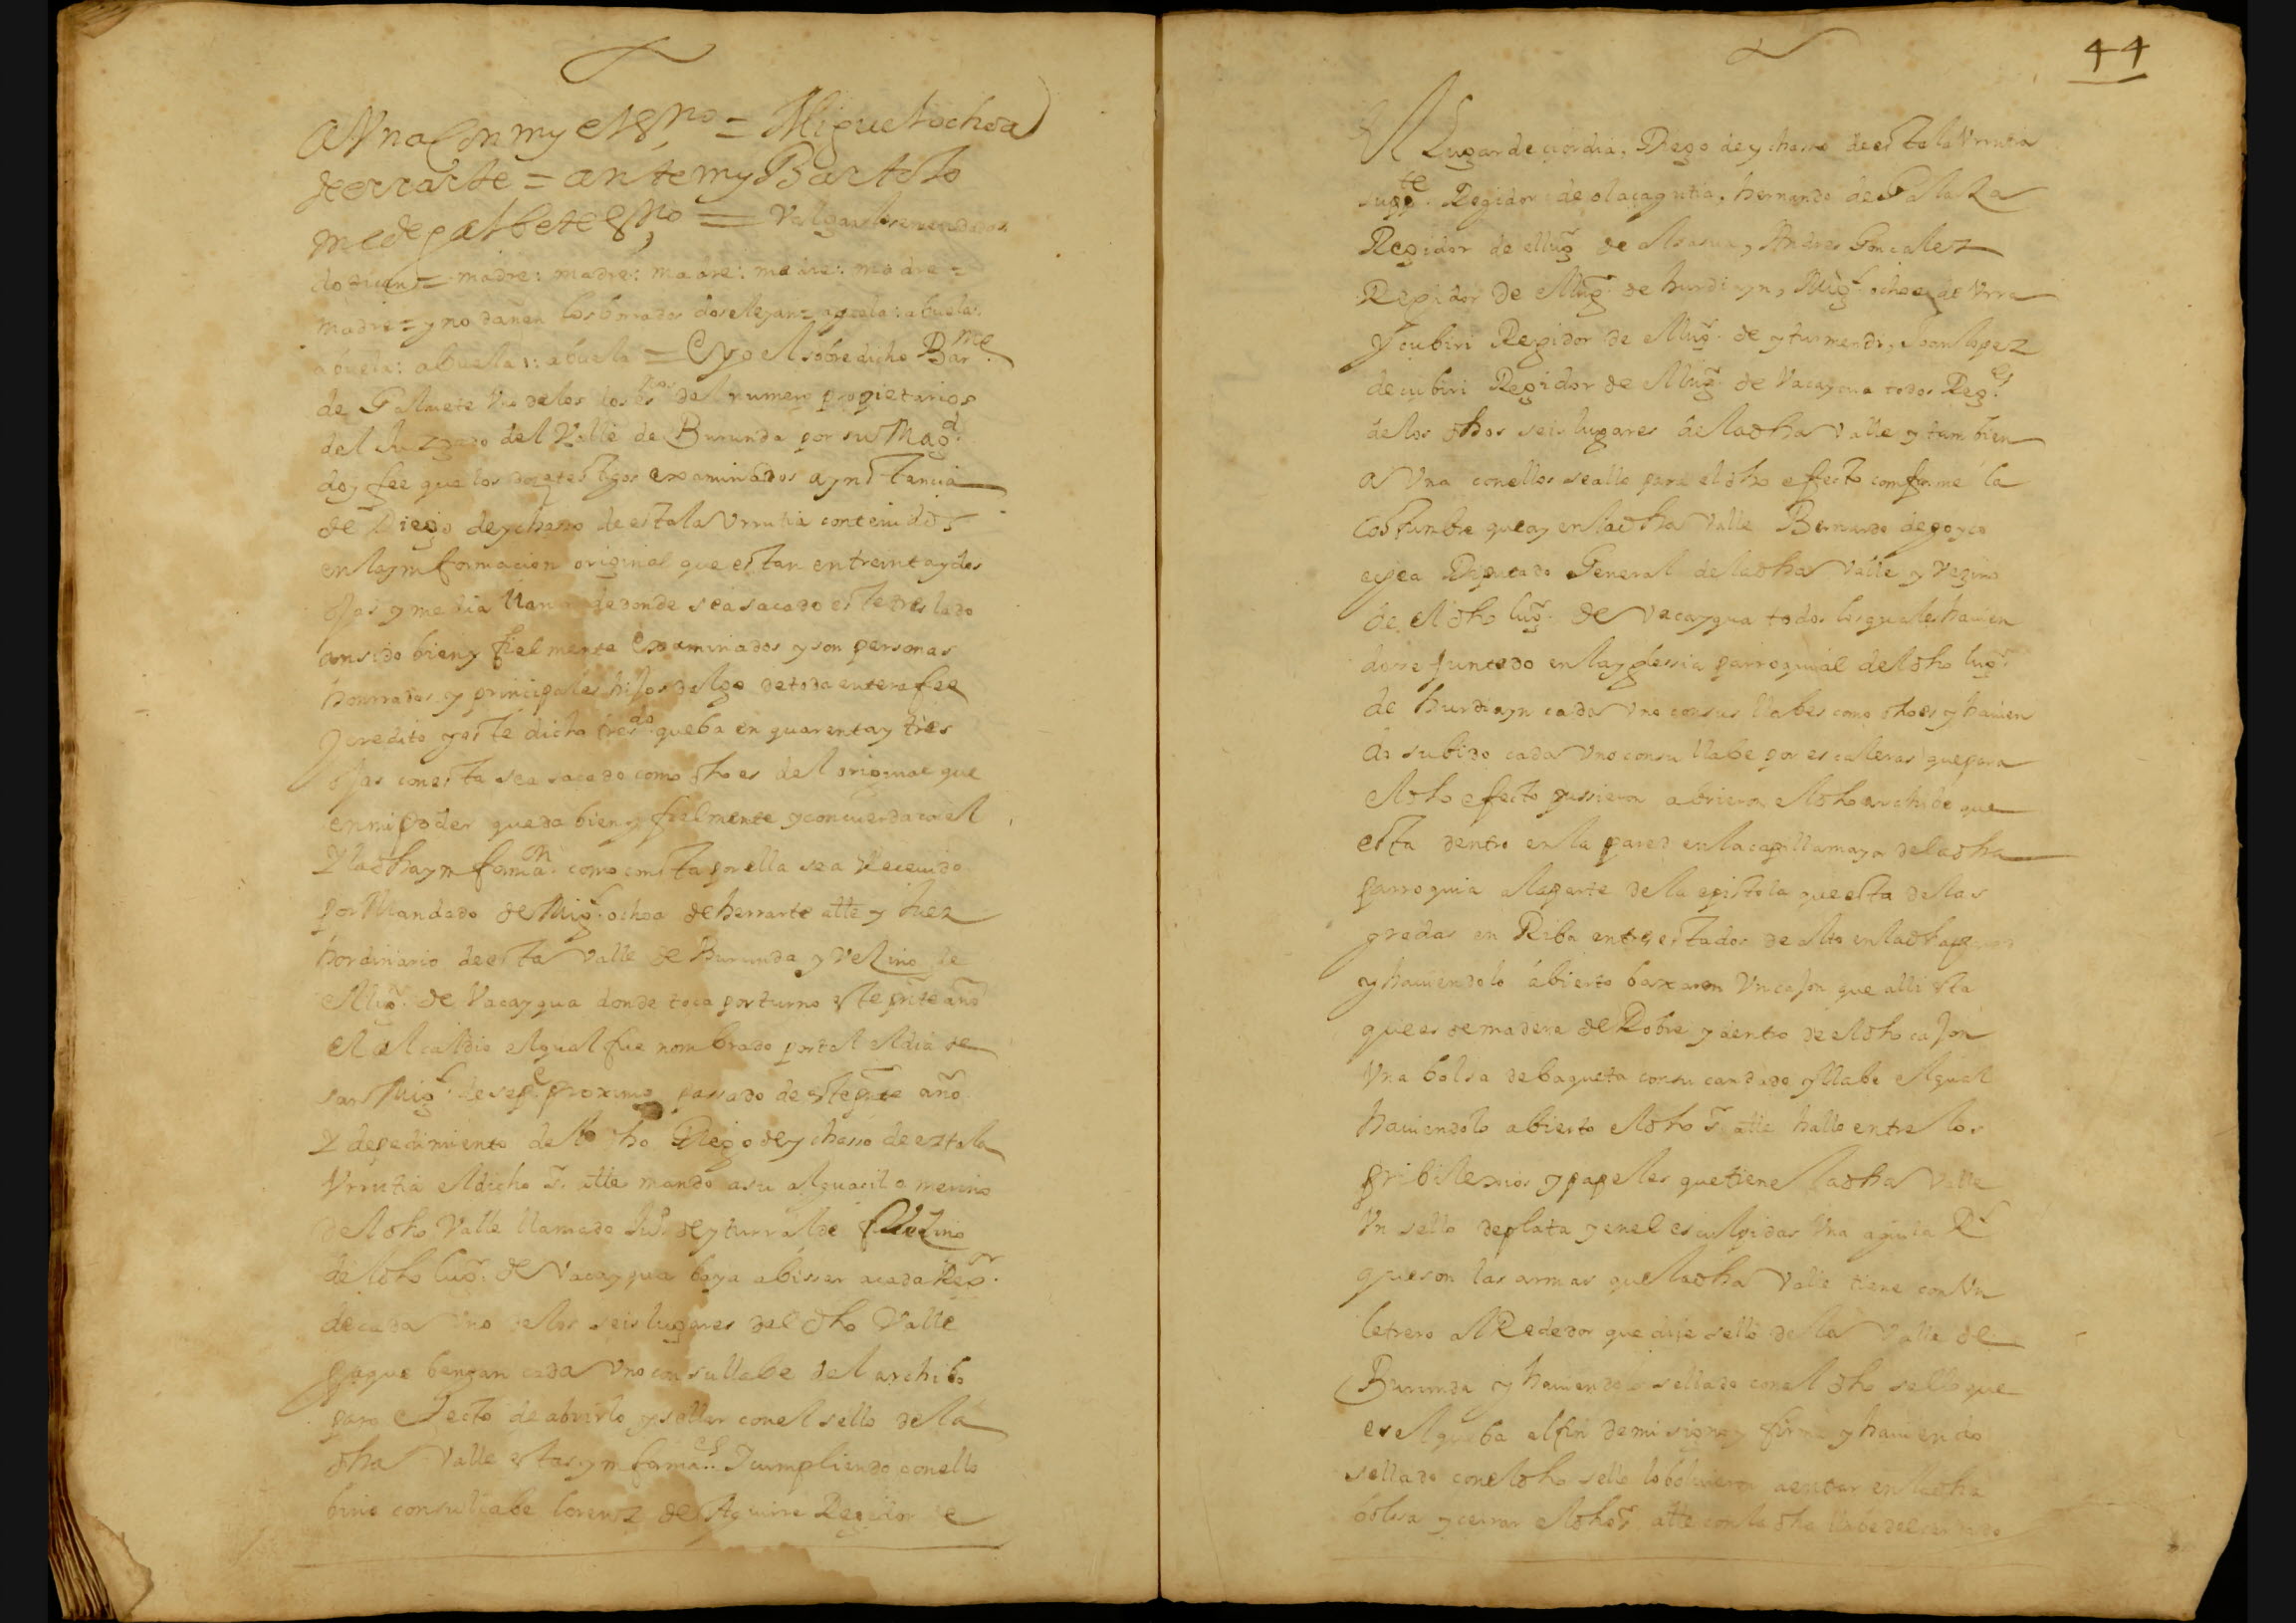 a Una con my el ss.no = Miguel ochoa
de errarte = ante my Bartolo
me de galbete ss.no = Valgan los enmendados
do dicen = madre: madre: madre: madre: madre =
madre = y no dañen los borrados aguela: abuela:
abuela: abuella: abuela = E yo el sobre dicho Bar.me
de Galbete Uno de los ss.nos del numero propietarios
del Juzgado del Valle de Burunda por su Mag.d
doy fee que los doze testigos examinados a ynstancia
de Diego de ychasso de estala Urrutia contenidos
en la ynformacion original que estan en treinta y dos
ojas y media llana de donde se a sacado este treslado
an sido bien y fielmente Examinados y son personas
honrradas y principales hijos dalgo de toda entera fee
y credito y este dicho tres.do que ba en quarenta y tres
ojas con esta se a sacado como dho es del original que
en mi poder queda bien y fielmente y concuerda con el
Y la dha ynforma.on como consta por ella se a Recevido
por Mandado de Mig.l ochoa de herrarte alle y Juez
hordinario de esta Valle de Burunda y Vezino de
el lug.r de Vacaygua donde toca por turno este pnte año
el alcaldio el qual fue nombrado por tal el dia de
san Mig.l de sep.e proximo passado de este pnte año
Y de pedimiento de el dho Diego de ychasso de estala
Urrutia el dicho s.r alle mando a su alguacil o merino
de el dho Valle llamado Ju.o de yturralde Vezino
de el dho lug.r de Vacaygua baya abissar a cada Reg.or
de cada Uno de los seis lugares del dho Valle
pa que bengan cada Uno con su llabe del archibo
para efecto de abrirlo y sellar con el sello de la
dha Valle estas ynforma.es Y cumpliendo con ello
bino con su llabe lorenz de Aguirre Regidor de
44
el Lugar de ciordia, Diego de ychasso de estala Urrutia
sup.te Regidor de olaçagutia, hernando de Galarza
Regidor de el lug.r de Alsasua, Andres Gonçalez
Regidor de el lug.r de hurdiayn, Mig.l ochoa de Urra
y cubiri Regidor de el lug.r de yturmendi, Joan lopez
de cubiri Regidor de el lug.r de Vacaygua todos Reg.es
de los dhos seis lugares de la dha Valle y tambien
a Una con ellos se allo para el dho effecto comforme la
Costunbre que ay en la dha Valle Bernardo de goyco
echea Diputado General de la dha Valle y Vezino
de el dho lug.r de Vacaygua todos los quales havien
dosse juntado en la yglessia parroquial de el dho lug.r
de hurdiayn cada Uno con sus llabes como dho es y havien
do subido cada Uno con su llabe por escaleras que para
el dho efecto pussieron abrieron el dho archibo que
esta dentro en la pared en la capilla mayor de la dha
parroquia a la parte de la epistola que esta de las
gredas en Riba entre estados de alto en la dha
y haviendolo abierto baxaron Un cajon que alli esta
que es de madera de Robre y dentro de el dho cajon
Una bolsa de baqueta con su candado y llabe el qual
haviendolo abierto el dho s.r alle hallo entre los
pribilexios y papeles que tiene la dha Valle
Un sello de plata y en el esculpidas Una aguila R.l
que son las armas que la dha Valle tiene con Un
letrero al Rededor que dize sello de la Valle de
Burunda y haviendolo sellado con el dho sello que
es el que ba al fin de mi signo y firma y haviendo
sellado con el dho sello lo bolvieron a entrar en la dha
bolsa y cerrar el dho s.r alle con la dha llabe del candado